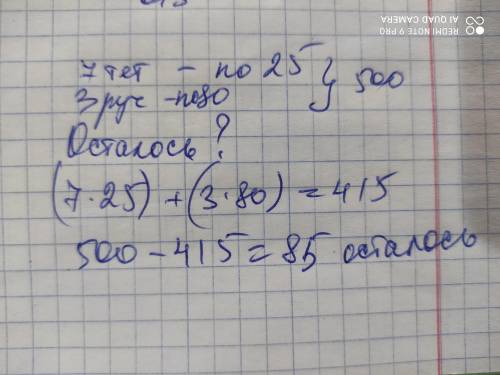 REDMI NOTE 9 PRO
AI QUAD CAMERA
7 тет - по 25 } 500
3 руч - по 80
Осталось ?
(7·25) + (3·80) = 415
500 - 415 = 85 осталось